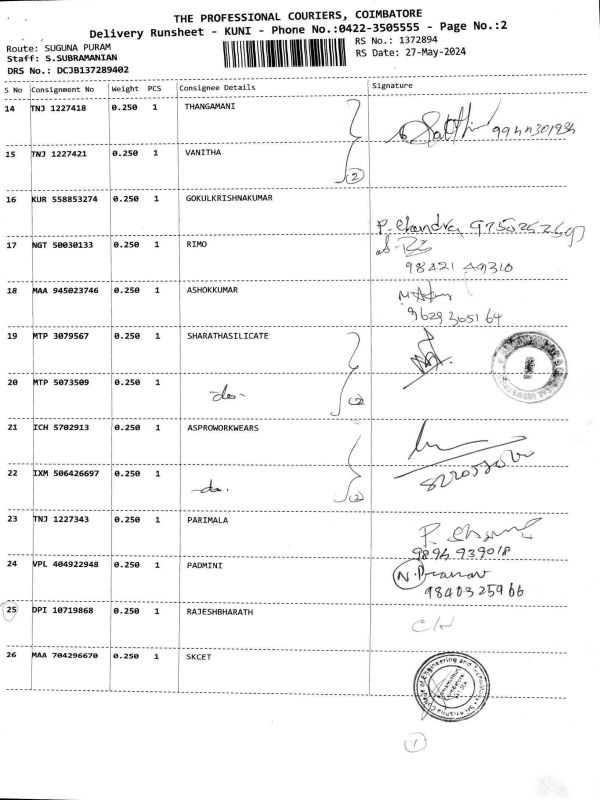 THE PROFESSIONAL COURIERS, COIMBATORE
Delivery Runsheet - KUNI - Phone No.:0422-3505555 - Page No.:2
Route: SUGUNA PURAM
RS No.: 1372894
Staff: S.SUBRAMANIAN
RS Date: 27-May-2024
DRS No.: DCJB137289402
S No Consignment No Weight PCS Consignee Details Signature
14 TNJ 1227418 0.250 1 THANGAMANI
15 TNJ 1227421 0.250 1 VANITHA
2
16 KUR 558853274 0.250 1 GOKULKRISHNAKUMAR
P. Chandra
17 NGT 50030133 0.250 1 RIMO
98421 49310
18 MAA 945023746 0.250 1 ASHOKKUMAR
9629305164
19 MTP 3079567 0.250 1 SHARATHASILICATE
20 MTP 5073509 0.250 1 -do-
2
21 ICH 5702913 0.250 1 ASPROWORKWEARS
22 IXM 506426697 0.250 1 -do-
2
23 TNJ 1227343 0.250 1 PARIMALA
9894939018
24 VPL 404922948 0.250 1 PADMINI N. Pranav
9840325966
25 DPI 10719868 0.250 1 RAJESHBHARATH
26 MAA 704296670 0.250 1 SKCET
Sri Krishna College of Engineering and Technology